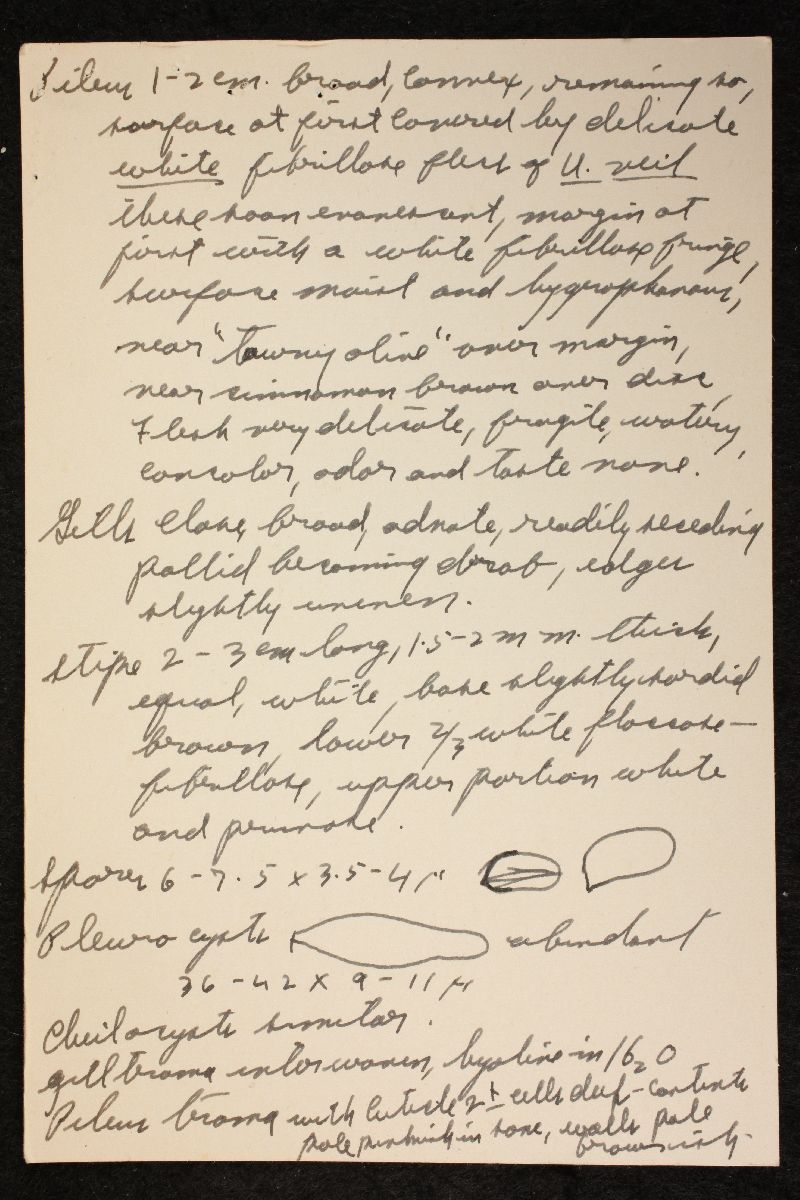 Pileus 1-2 cm. broad, convex, remaining so,
surface at first covered by delicate
white fibrillose flecks of U. veil
these soon evanescent, margin at
first with a white fibrillose fringe,
surface moist and hygrophanous,
near "tawny olive" over margin,
near cinnamon brown over disc,
Flesh very delicate, fragile, watery,
concolor, odor and taste none.
Gills close, broad, adnate, readily seceding
pallid becoming drab, edges
slightly uneven.
Stipe 2-3 cm long, 1.5-2 m m. thick,
equal, white, base slightly sordid
brown, lower 2/3 white floccose-
fibrillose, upper portion white
and pruinose.
Spores 6-7.5 x 3.5-4 μ
Pleurocysts abundant
36-42 x 9-11 μ
Cheilocysts similar.
gill trama interwoven, hyaline in H2O
Pileus trama with cuticle cells contents
pale pinkish in some, walls pale
brownish